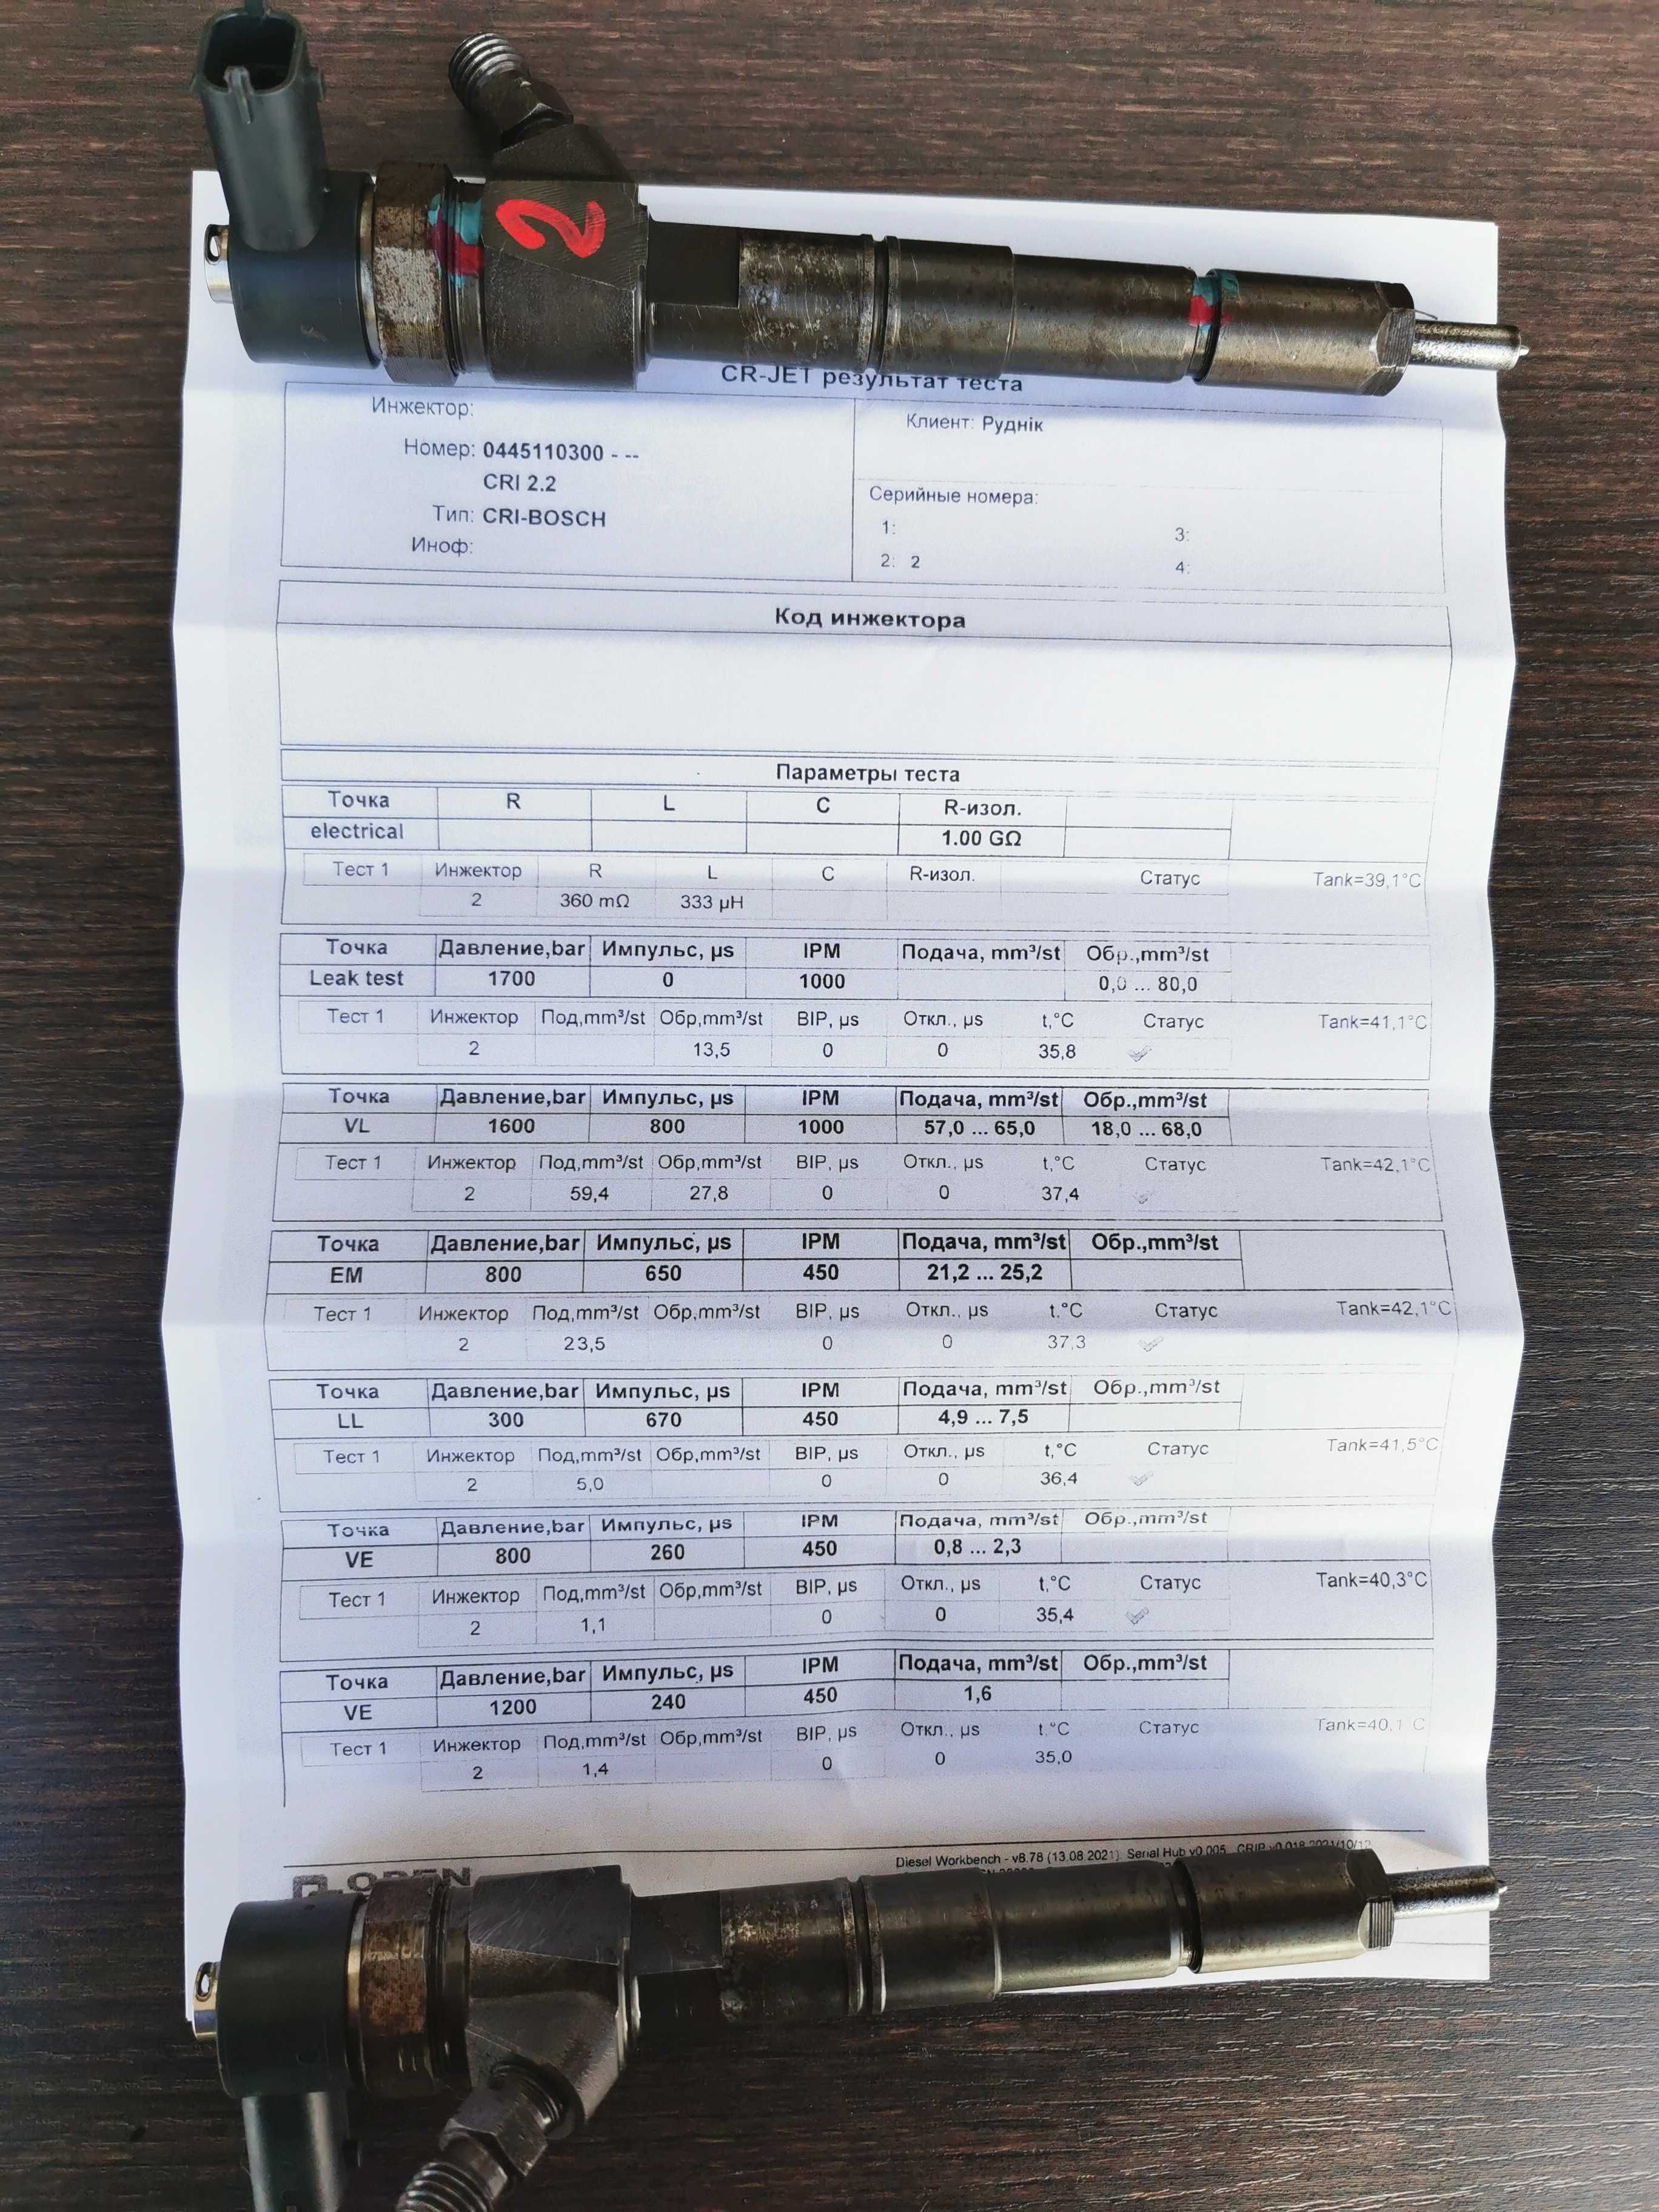 2
CR-JET результат теста
Инжектор:
Номер: 0445110300 - --
CRI 2.2
Тип: CRI-BOSCH
Иноф:
Клиент: Руднік
Серийные номера:
1: 3:
2: 2 4:
Код инжектора
Параметры теста
Точка R L C R-изол.
electrical 1.00 GΩ
Тест 1 Инжектор R L C R-изол. Статус Tank=39,1°C
2 360 mΩ 333 µH
Точка Давление,bar Импульс, µs IPM Подача, mm³/st Обр.,mm³/st
Leak test 1700 0 1000 0,0 ... 80,0
Тест 1 Инжектор Под,mm³/st Обр,mm³/st BIP, µs Откл., µs t,°C Статус Tank=41,1°C
2 13,5 0 0 35,8
Точка Давление,bar Импульс, µs IPM Подача, mm³/st Обр.,mm³/st
VL 1600 800 1000 57,0 ... 65,0 18,0 ... 68,0
Тест 1 Инжектор Под,mm³/st Обр,mm³/st BIP, µs Откл., µs t,°C Статус Tank=42,1°C
2 59,4 27,8 0 0 37,4
Точка Давление,bar Импульс, µs IPM Подача, mm³/st Обр.,mm³/st
EM 800 650 450 21,2 ... 25,2
Тест 1 Инжектор Под,mm³/st Обр,mm³/st BIP, µs Откл., µs t,°C Статус Tank=42,1°C
2 23,5 0 0 37,3
Точка Давление,bar Импульс, µs IPM Подача, mm³/st Обр.,mm³/st
LL 300 670 450 4,9 ... 7,5
Тест 1 Инжектор Под,mm³/st Обр,mm³/st BIP, µs Откл., µs t,°C Статус Tank=41,5°C
2 5,0 0 0 36,4
Точка Давление,bar Импульс, µs IPM Подача, mm³/st Обр.,mm³/st
VE 800 260 450 0,8 ... 2,3
Тест 1 Инжектор Под,mm³/st Обр,mm³/st BIP, µs Откл., µs t,°C Статус Tank=40,3°C
2 1,1 0 0 35,4
Точка Давление,bar Импульс, µs IPM Подача, mm³/st Обр.,mm³/st
VE 1200 240 450 1,6
Тест 1 Инжектор Под,mm³/st Обр,mm³/st BIP, µs Откл., µs t,°C Статус Tank=40,1 C
2 1,4 0 0 35,0
Diesel Workbench - v8.78 (13.08.2021). Serial Hub v0.005 CRIP v0.018 2021/10/12
OPEN